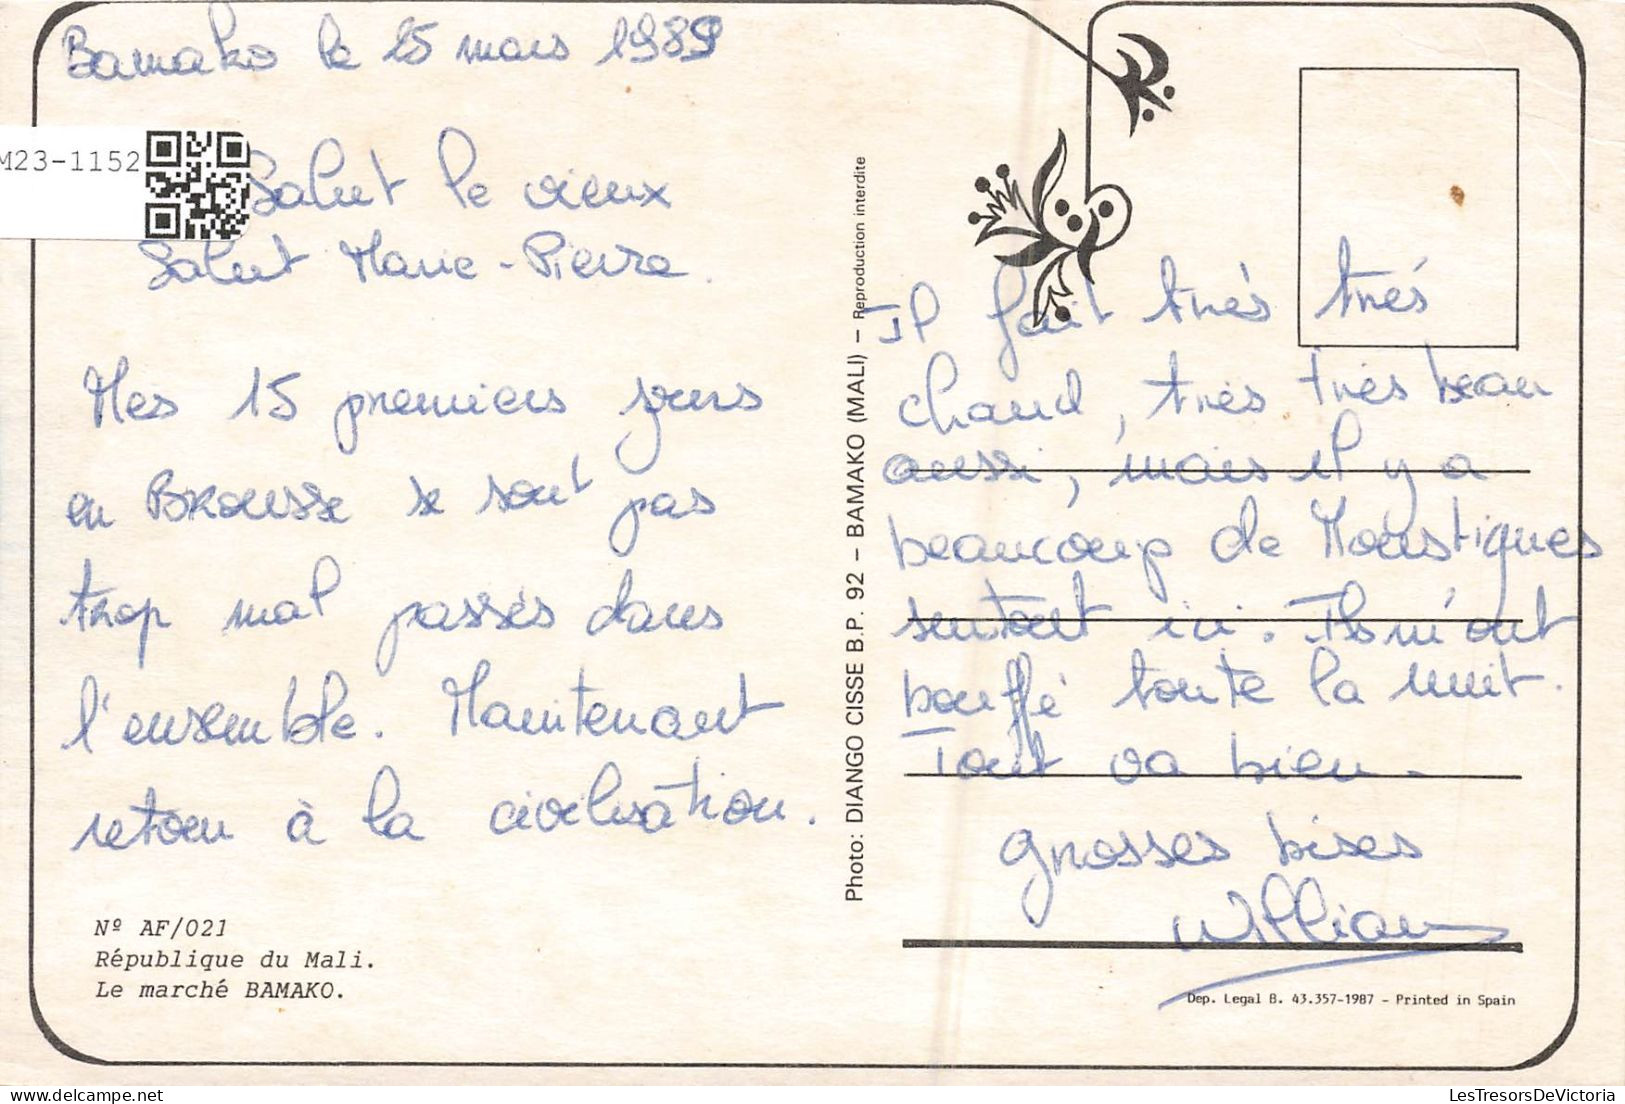 Bamako le 15 mars 1989
M23-1152
Salut le vieux
Salut Marie-Pierre.
Mes 15 premiers jours
en Brousse se sont pas
trop mal passés dans
l'ensemble. Maintenant
retour à la civilisation.
Nº AF/021
République du Mali.
Le marché BAMAKO.
Photo: DIANGO CISSE B.P. 92 – BAMAKO (MALI) – Reproduction interdite
Il fait très très
chaud, très très beau
aussi, mais il y a
beaucoup de Moustiques
surtout ici. Ils m'ont
bouffé toute la nuit.
Tout va bien.
grosses bises
William
Dep. Legal B. 43.357-1987 - Printed in Spain
LesTresorsDeVictoria